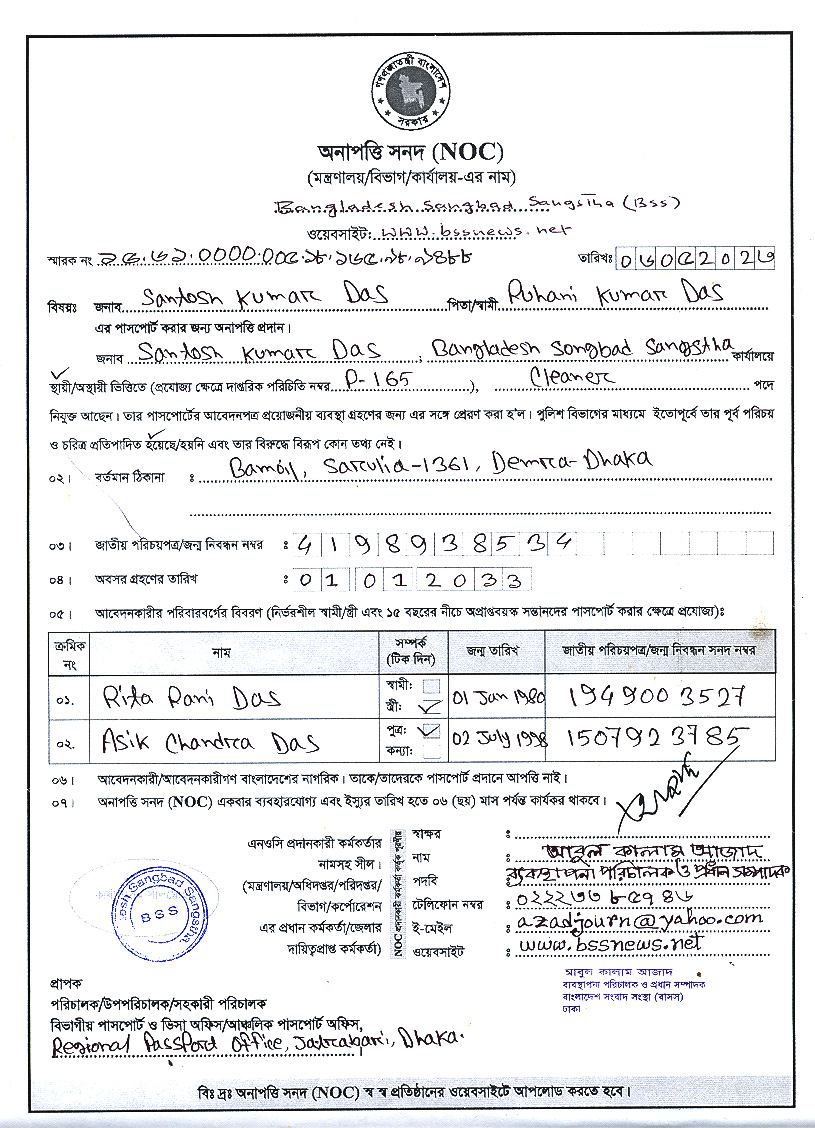 গণপ্রজাতন্ত্রী বাংলাদেশ
সরকার
অনাপত্তি সনদ (NOC)
(মন্ত্রণালয়/বিভাগ/কার্যালয়-এর নাম)
Bangladesh Sangbad Sangstha (BSS)
ওয়েবসাইট: www.bssnews.net
স্মারক নং
তারিখঃ ০৬০৫২০২৬
বিষয়ঃ জনাব Santosh Kumar Das পিতা/স্বামী Ruhani Kumar Das
এর পাসপোর্ট করার জন্য অনাপত্তি প্রদান।
জনাব Santosh Kumar Das, Bangladesh Songbad Sangstha কার্যালয়ে
স্থায়ী/অস্থায়ী ভিত্তিতে (প্রযোজ্য ক্ষেত্রে দাপ্তরিক পরিচিতি নম্বর P-165), Cleaner পদে
নিযুক্ত আছেন। তার পাসপোর্টের আবেদনপত্র প্রয়োজনীয় ব্যবস্থা গ্রহণের জন্য এর সঙ্গে প্রেরণ করা হ'ল। পুলিশ বিভাগের মাধ্যমে ইতোপূর্বে তার পূর্ব পরিচয়
ও চরিত্র প্রতিপাদিত হয়েছে/হয়নি এবং তার বিরুদ্ধে বিরূপ কোন তথ্য নেই।
০২। বর্তমান ঠিকানা : Bamoil, Sarulia-1361, Demra-Dhaka
০৩। জাতীয় পরিচয়পত্র/জন্ম নিবন্ধন নম্বর : 4198938534
০৪। অবসর গ্রহণের তারিখ : 01012033
০৫। আবেদনকারীর পরিবারবর্গের বিবরণ (নির্ভরশীল স্বামী/স্ত্রী এবং ১৫ বছরের নীচে অপ্রাপ্তবয়স্ক সন্তানদের পাসপোর্ট করার ক্ষেত্রে প্রযোজ্য)ঃ
ক্রমিক নং নাম সম্পর্ক (টিক দিন) জন্ম তারিখ জাতীয় পরিচয়পত্র/জন্ম নিবন্ধন সনদ নম্বর
০১. Rita Rani Das স্বামী: স্ত্রী: 01 Jan 1980 1949003527
০২. Asik Chandra Das পুত্র: কন্যা: 02 July 1998 1507923785
০৬। আবেদনকারী/আবেদনকারীগণ বাংলাদেশের নাগরিক। তাকে/তাদেরকে পাসপোর্ট প্রদানে আপত্তি নাই।
০৭। অনাপত্তি সনদ (NOC) একবার ব্যবহারযোগ্য এবং ইস্যুর তারিখ হতে ০৬ (ছয়) মাস পর্যন্ত কার্যকর থাকবে।
এনওসি প্রদানকারী কর্মকর্তার
নামসহ সীল।
(মন্ত্রণালয়/অধিদপ্তর/পরিদপ্তর/
বিভাগ/কর্পোরেশন
এর প্রধান কর্মকর্তা/জেলার
দায়িত্বপ্রাপ্ত কর্মকর্তা)
NOC প্রদানকারী কর্মকর্তা কর্তৃক পূরণীয়
স্বাক্ষর :
নাম : আবুল কালাম আজাদ
পদবি : ব্যবস্থাপনা পরিচালক ও প্রধান সম্পাদক
টেলিফোন নম্বর :
ই-মেইল : azadjourn@yahoo.com
ওয়েবসাইট : www.bssnews.net
Sangbad Sangstha
BSS
আবুল কালাম আজাদ
ব্যবস্থাপনা পরিচালক ও প্রধান সম্পাদক
বাংলাদেশ সংবাদ সংস্থা (বাসস)
ঢাকা
প্রাপক
পরিচালক/উপপরিচালক/সহকারী পরিচালক
বিভাগীয় পাসপোর্ট ও ভিসা অফিস/আঞ্চলিক পাসপোর্ট অফিস,
Regional Passport Office, Jatrabari, Dhaka.
বিঃ দ্রঃ অনাপত্তি সনদ (NOC) স্ব স্ব প্রতিষ্ঠানের ওয়েবসাইটে আপলোড করতে হবে।